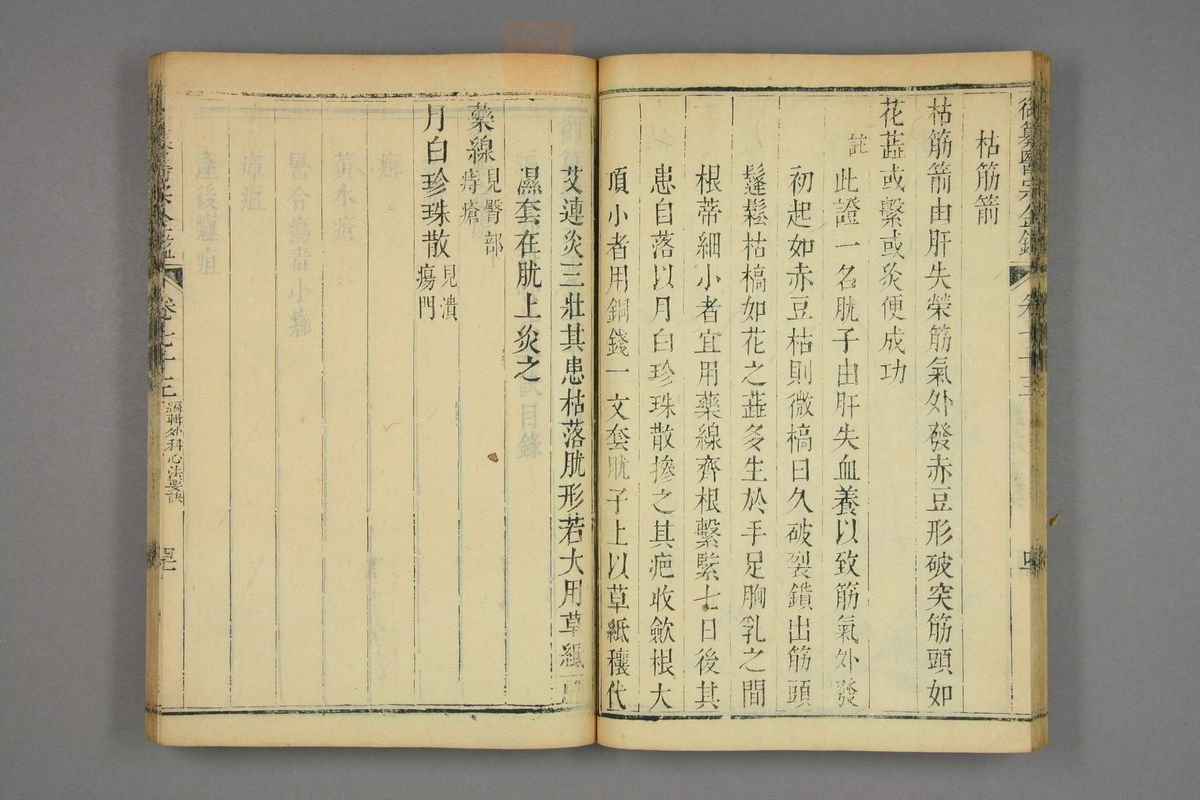 御纂醫宗金鑑 卷七十三
枯筋箭
枯筋箭由肝失榮筋氣外發赤豆形破突筋頭如
花蕋或繫或灸便成功
註
此證一名肬子由肝失血養以致筋氣外發
初起如赤豆枯則微槁日久破裂鑚出筋頭
鬔鬆枯槁如花之蕋多生於手足胸乳之間
根蒂細小者宜用藥線齊根繫緊七日後其
患自落以月白珍珠散摻之其疤收歛根大
頂小者用銅錢一文套肬子上以草紙穰代
艾連灸三壯其患枯落肬形若大用草紙
濕套在肬上灸之
藥線見臀部痔瘡
月白珍珠散見潰瘍門
卷七十三 編輯外科心法要訣